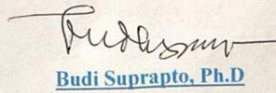 Budi Suprapto, Ph.D